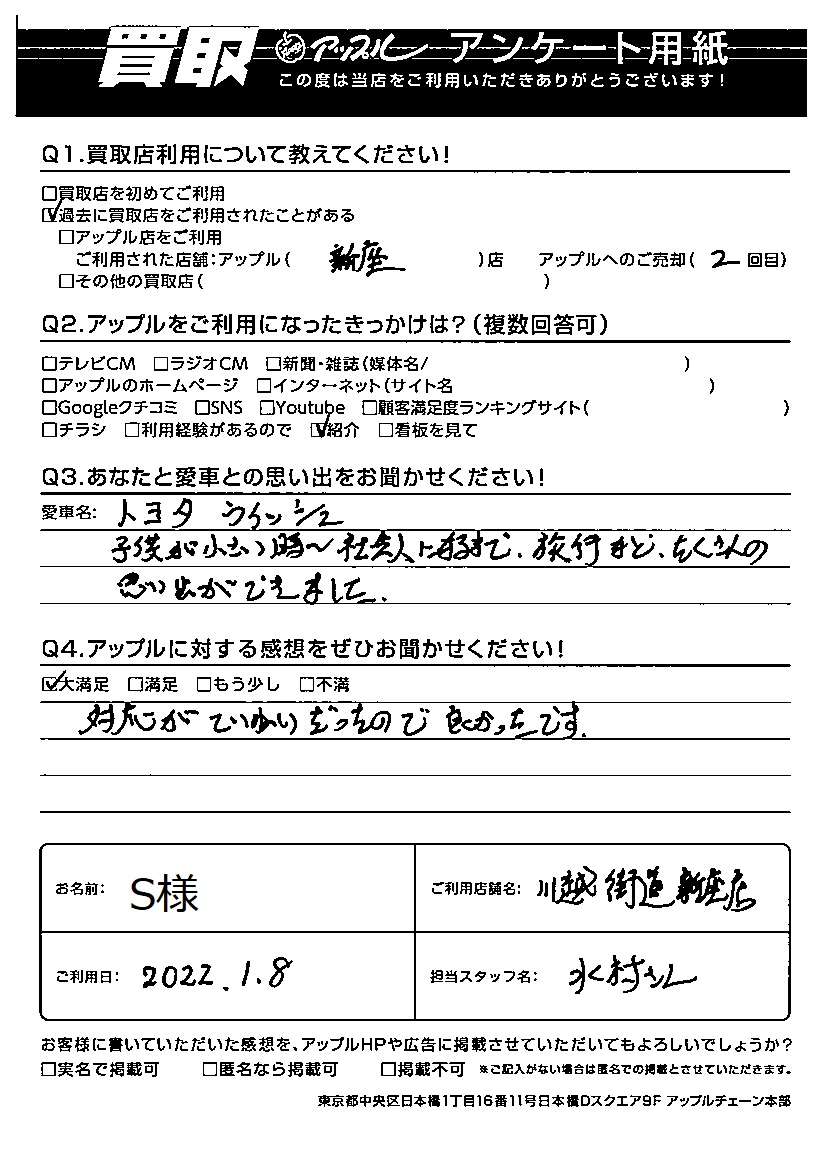 買取 アップル アンケート用紙
この度は当店をご利用いただきありがとうございます!
Q1.買取店利用について教えてください!
□買取店を初めてご利用
☑過去に買取店をご利用されたことがある
□アップル店をご利用
ご利用された店舗:アップル( 新座 )店 アップルへのご売却( 2 回目)
□その他の買取店( )
Q2.アップルをご利用になったきっかけは?(複数回答可)
□テレビCM □ラジオCM □新聞・雑誌(媒体名/ )
□アップルのホームページ □インターネット(サイト名 )
□Googleクチコミ □SNS □Youtube □顧客満足度ランキングサイト( )
□チラシ □利用経験があるので ☑紹介 □看板を見て
Q3.あなたと愛車との思い出をお聞かせください!
愛車名: トヨタ ウィッシュ
子供が小さい時〜社会人になるまで、旅行など、たくさんの
思い出ができました。
Q4.アップルに対する感想をぜひお聞かせください!
☑大満足 □満足 □もう少し □不満
対応がていねいだったので良かったです。
お名前: S様 ご利用店舗名: 川越街道新座店
ご利用日: 2022.1.8 担当スタッフ名: 水村さん
お客様に書いていただいた感想を、アップルHPや広告に掲載させていただいてもよろしいでしょうか?
□実名で掲載可 □匿名なら掲載可 □掲載不可 ※ご記入がない場合は匿名での掲載とさせていただきます。
東京都中央区日本橋1丁目16番11号日本橋Dスクエア9F アップルチェーン本部